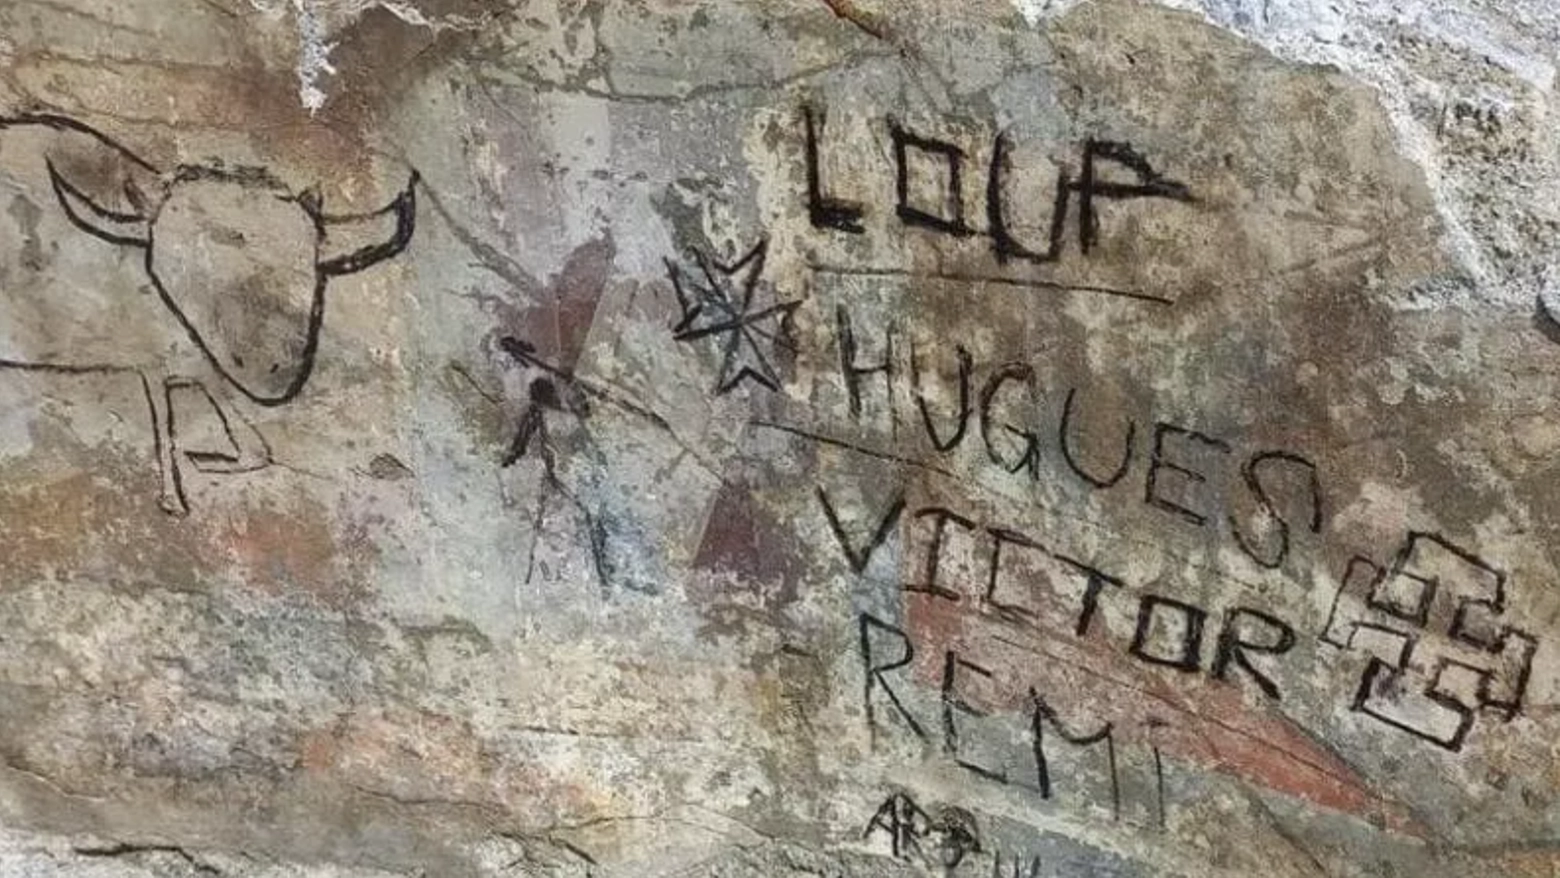 LOUP
HUGUES
VICTOR
REMI